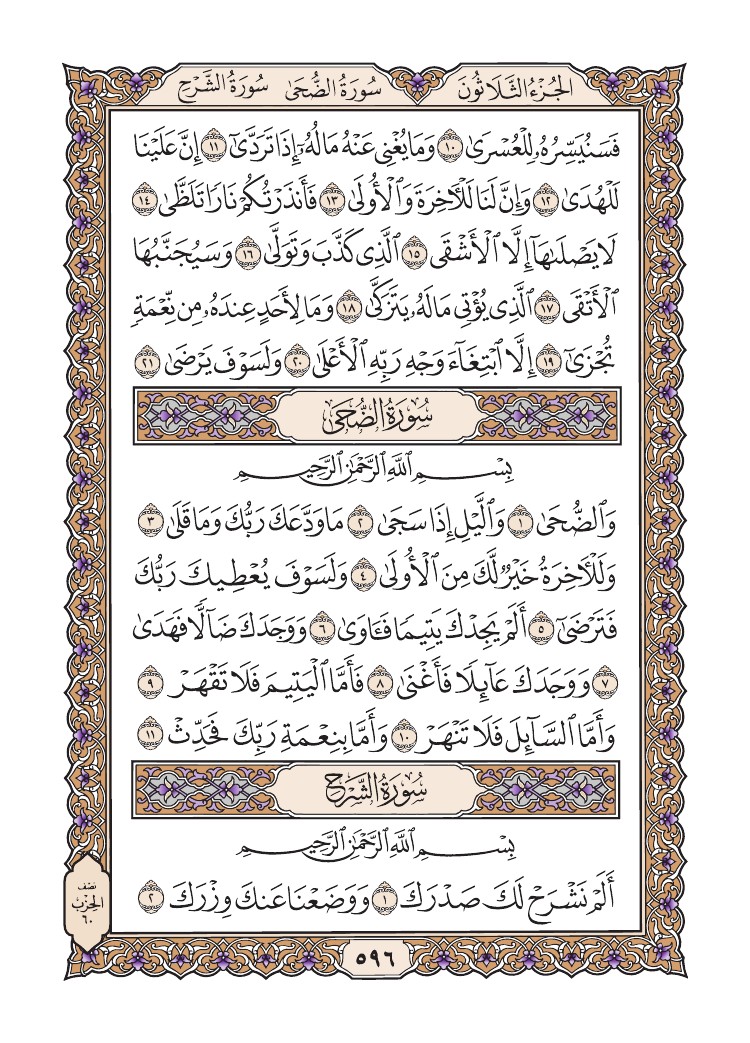 الجُزْءُ الثَّلَاثُونَ سُورَةُ الضُّحَى سُورَةُ الشَّرْحِ
فَسَنُيَسِّرُهُۥ لِلْعُسْرَىٰ ١٠ وَمَا يُغْنِى عَنْهُ مَالُهُۥٓ إِذَا تَرَدَّىٰٓ ١١ إِنَّ عَلَيْنَا
لَلْهُدَىٰ ١٢ وَإِنَّ لَنَا لَلْءَاخِرَةَ وَٱلْأُولَىٰ ١٣ فَأَنذَرْتُكُمْ نَارًا تَلَظَّىٰ ١٤
لَا يَصْلَىٰهَآ إِلَّا ٱلْأَشْقَى ١٥ ٱلَّذِى كَذَّبَ وَتَوَلَّىٰ ١٦ وَسَيُجَنَّبُهَا
ٱلْأَتْقَى ١٧ ٱلَّذِى يُؤْتِى مَالَهُۥ يَتَزَكَّىٰ ١٨ وَمَا لِأَحَدٍ عِندَهُۥ مِن نِّعْمَةٍ
تُجْزَىٰٓ ١٩ إِلَّا ٱبْتِغَآءَ وَجْهِ رَبِّهِ ٱلْأَعْلَىٰ ٢٠ وَلَسَوْفَ يَرْضَىٰ ٢١
سُورَةُ الضُّحَى
بِسْمِ ٱللَّهِ ٱلرَّحْمَٰنِ ٱلرَّحِيمِ
وَٱلضُّحَىٰ ١ وَٱلَّيْلِ إِذَا سَجَىٰ ٢ مَا وَدَّعَكَ رَبُّكَ وَمَا قَلَىٰ ٣
وَلَلْءَاخِرَةُ خَيْرٌ لَّكَ مِنَ ٱلْأُولَىٰ ٤ وَلَسَوْفَ يُعْطِيكَ رَبُّكَ
فَتَرْضَىٰٓ ٥ أَلَمْ يَجِدْكَ يَتِيمًا فَـَٔاوَىٰ ٦ وَوَجَدَكَ ضَآلًّا فَهَدَىٰ
٧ وَوَجَدَكَ عَآئِلًا فَأَغْنَىٰ ٨ فَأَمَّا ٱلْيَتِيمَ فَلَا تَقْهَرْ ٩
وَأَمَّا ٱلسَّآئِلَ فَلَا تَنْهَرْ ١٠ وَأَمَّا بِنِعْمَةِ رَبِّكَ فَحَدِّثْ ١١
سُورَةُ الشَّرْحِ
بِسْمِ ٱللَّهِ ٱلرَّحْمَٰنِ ٱلرَّحِيمِ
أَلَمْ نَشْرَحْ لَكَ صَدْرَكَ ١ وَوَضَعْنَا عَنكَ وِزْرَكَ ٢
نصف
الحِزْب
٦٠
٥٩٦